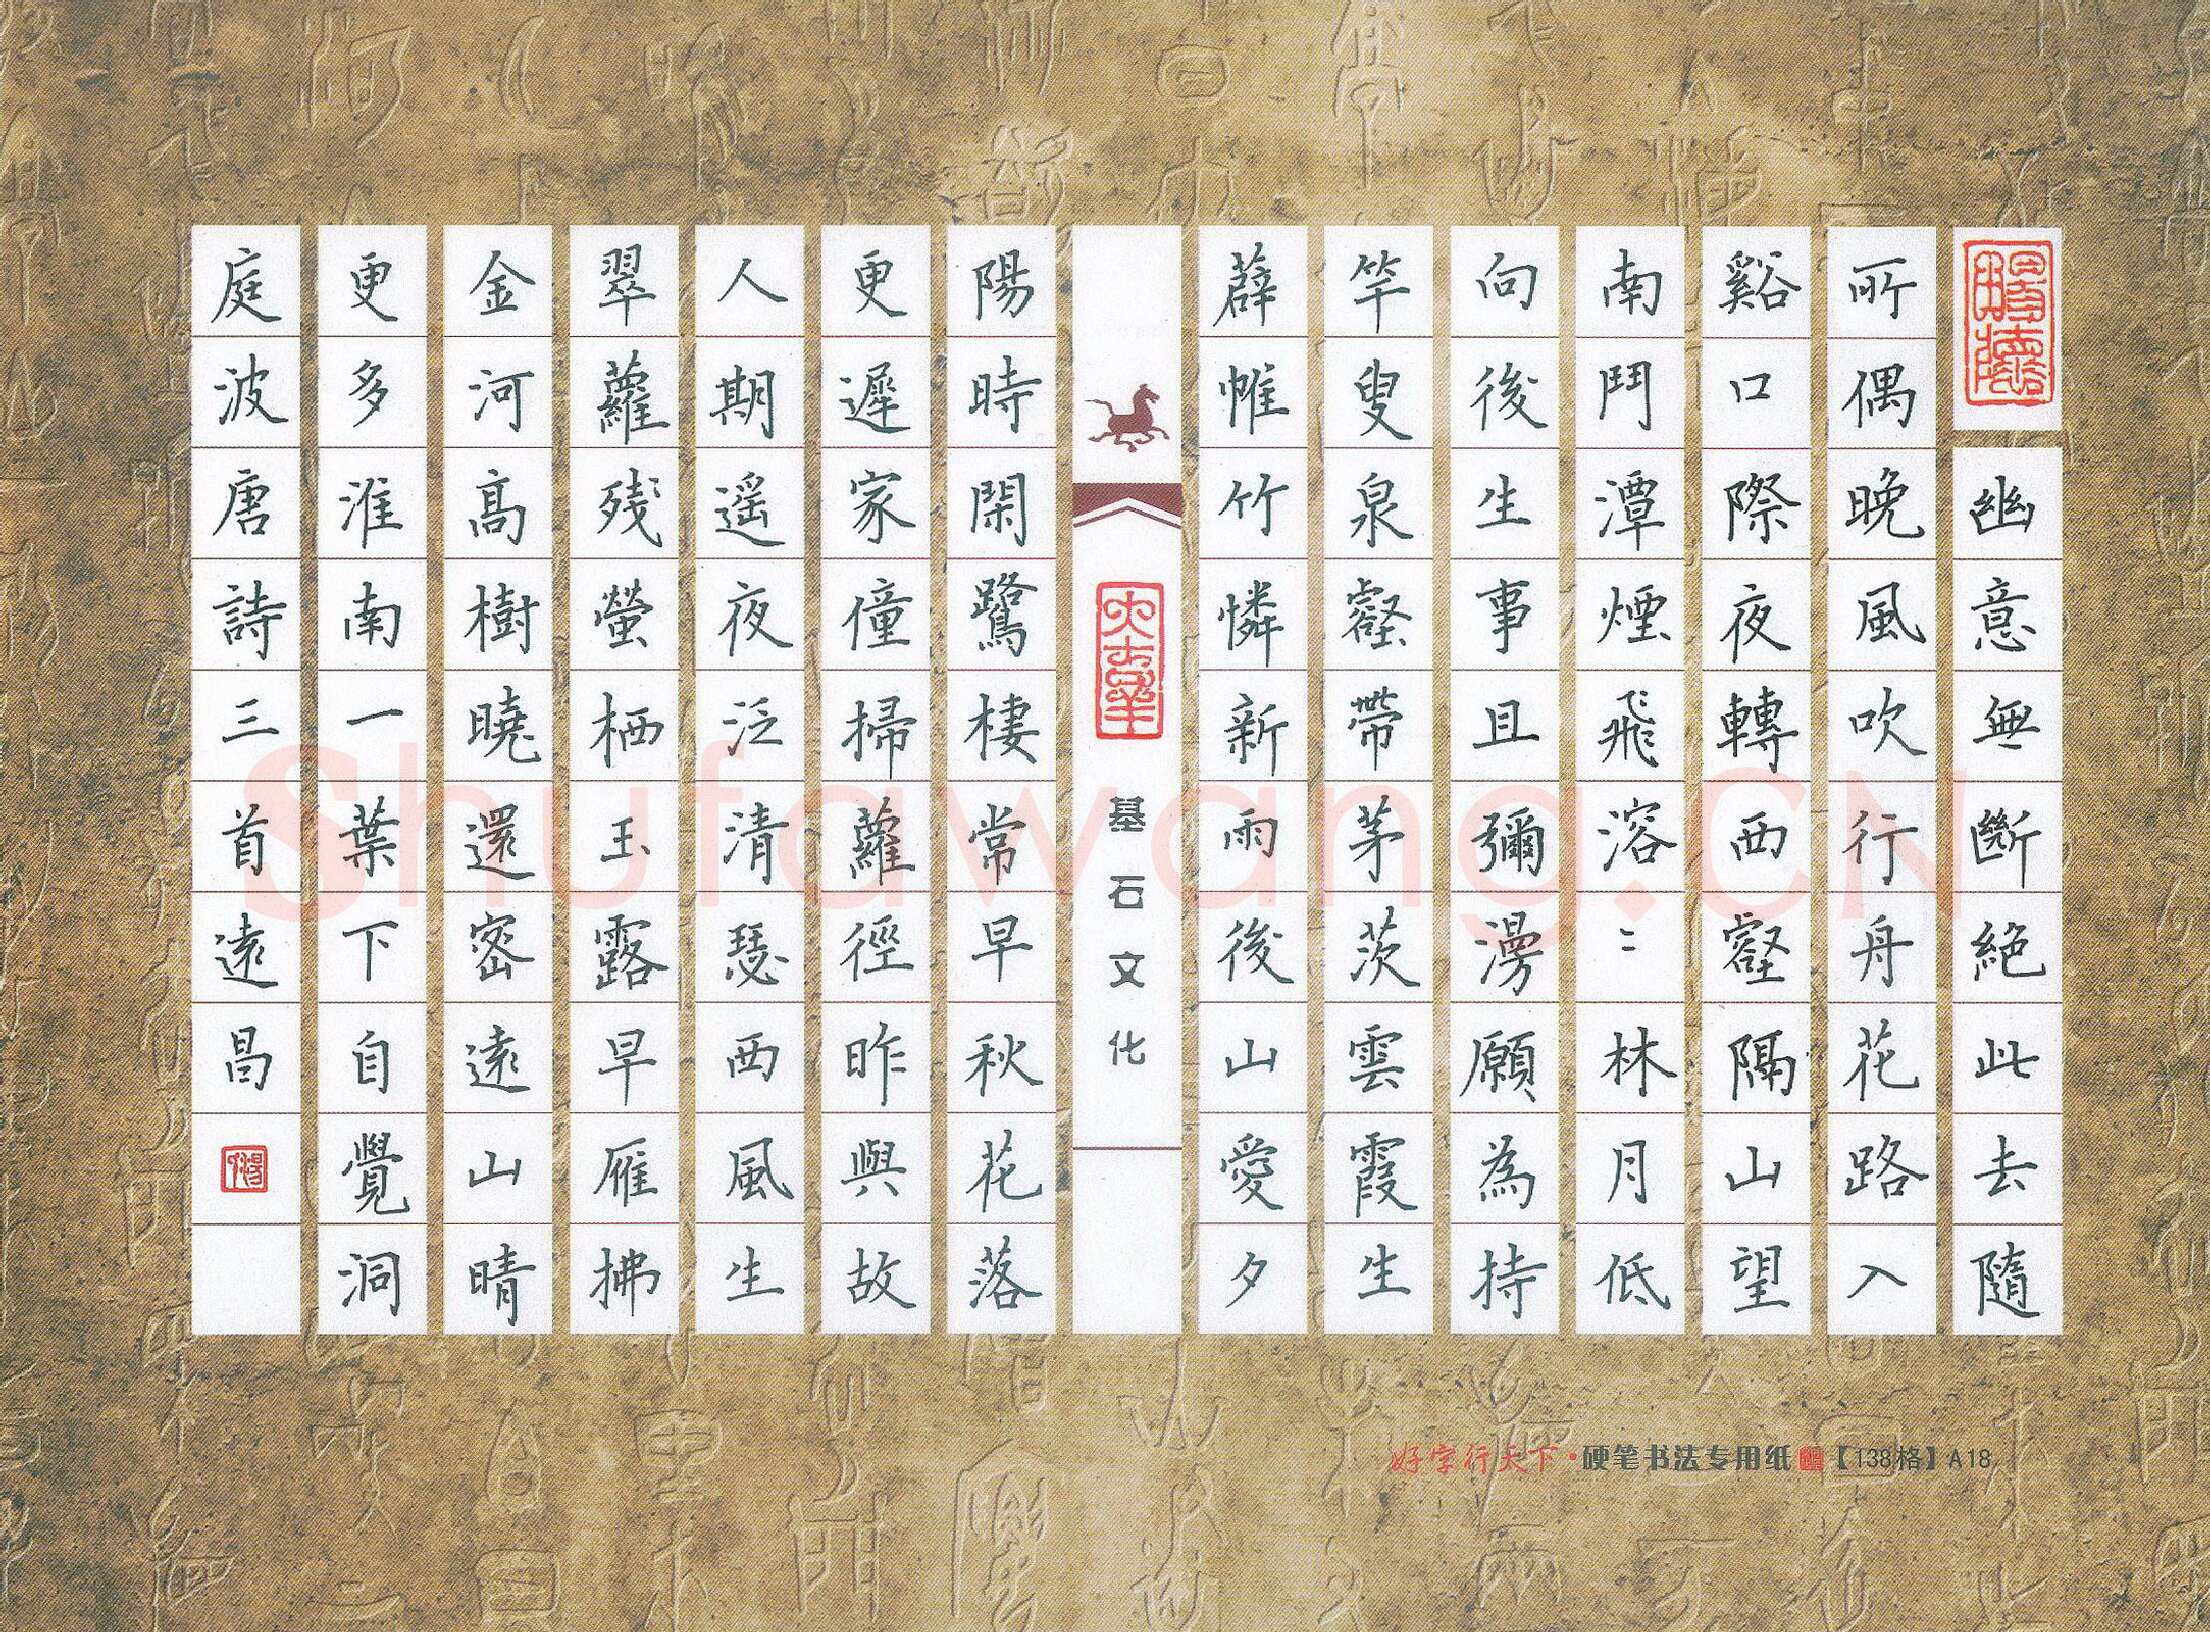 幽意無斷絕此去隨
所偶晚風吹行舟花路入
谿口際夜轉西壑隔山望
南鬥潭煙飛溶〻林月低
向後生事且彌漫願為持
竿叟泉壑帶茅茨雲霞生
薜帷竹憐新雨後山愛夕
基石文化
陽時閑鷺棲常早秋花落
更遲家僮掃蘿徑昨與故
人期遥夜泛清瑟西風生
翠蘿殘螢栖玉露早雁拂
金河高樹曉還密遠山晴
更多淮南一葉下自覺洞
庭波唐詩三首遠昌
好字行天下·硬笔书法专用纸【138格】A18
Shufawang.CN